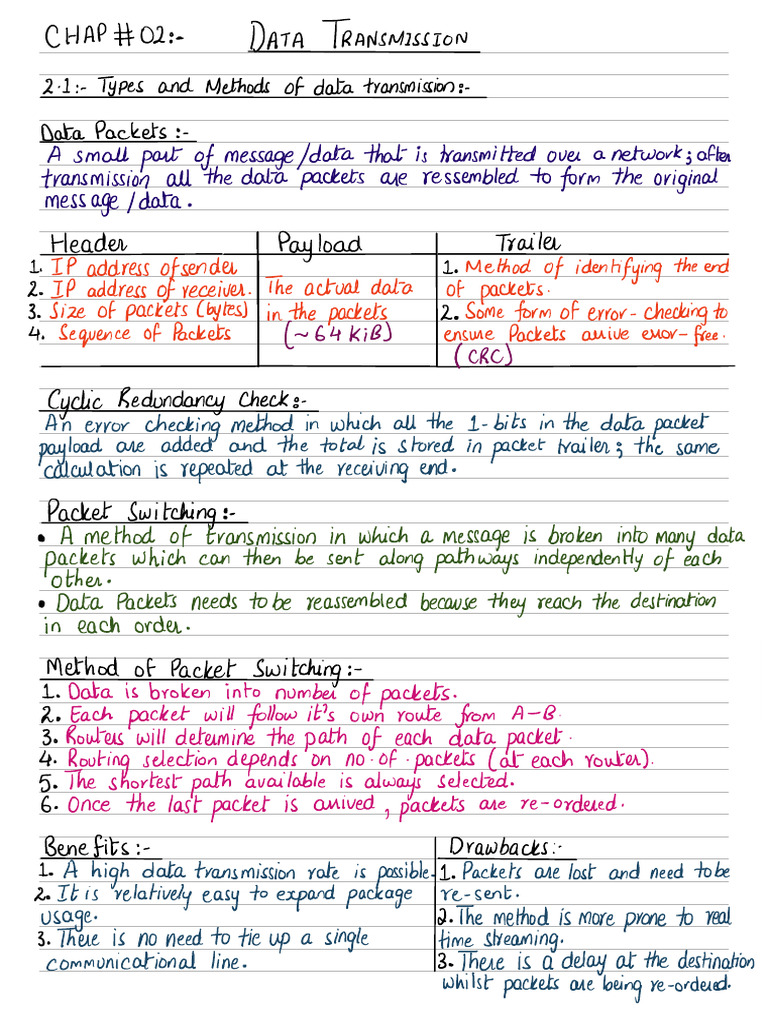 CHAP # 02:- DATA TRANSMISSION
2.1:- Types and Methods of data transmission:-
Data Packets:-
A small part of message/data that is transmitted over a network; after
transmission all the data packets are ressembled to form the original
message/data.
Header
1. IP address of sender
2. IP address of receiver.
3. Size of packets (bytes)
4. Sequence of Packets
Payload
The actual data
in the packets
(~64 KiB)
Trailer
1. Method of identifying the end
of packets.
2. Some form of error-checking to
ensure Packets arrive error-free.
(CRC)
Cyclic Redundancy Check:-
An error checking method in which all the 1-bits in the data packet
payload are added and the total is stored in packet trailer; the same
calculation is repeated at the receiving end.
Packet Switching:-
• A method of transmission in which a message is broken into many data
packets which can then be sent along pathways independently of each
other.
• Data Packets needs to be reassembled because they reach the destination
in each order.
Method of Packet Switching:-
1. Data is broken into number of packets.
2. Each packet will follow it's own route from A-B.
3. Routers will determine the path of each data packet.
4. Routing selection depends on no. of. packets (at each router).
5. The shortest path available is always selected.
6. Once the last packet is arrived, packets are re-ordered.
Benefits:-
1. A high data transmission rate is possible.
2. It is relatively easy to expand package
usage.
3. There is no need to tie up a single
communicational line.
Drawbacks:-
1. Packets are lost and need to be
re-sent.
2. The method is more prone to real
time streaming.
3. There is a delay at the destination
whilst packets are being re-ordered.